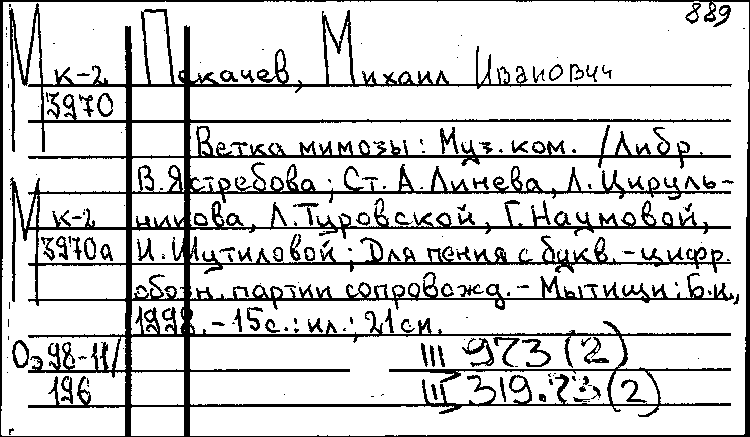 889
М к-2 Пекачев, Михаил Иванович
3970
Ветка мимозы : Муз. ком. / Либр.
В. Ястребова ; Ст. А. Линева, Л. Цируль-
М к-2 никова, Л. Туровской, Г. Наумовой,
3970а И. Шутиловой ; Для пения с букв.-цифр.
обозн. партии сопровожд. - Мытищи : Б.и.,
1998. - 15с. : ил. ; 21 см.
Оэ 98-11/ III 973 (2)
196 III 319.73 (2)